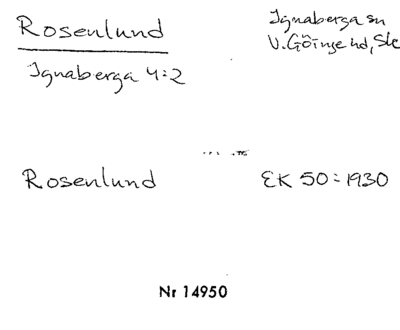 Rosenlund
Ignaberga sn
V.Göinge hd, Sk
Ignaberga 4:2
Rosenlund
EK 50:1930
Nr 14950